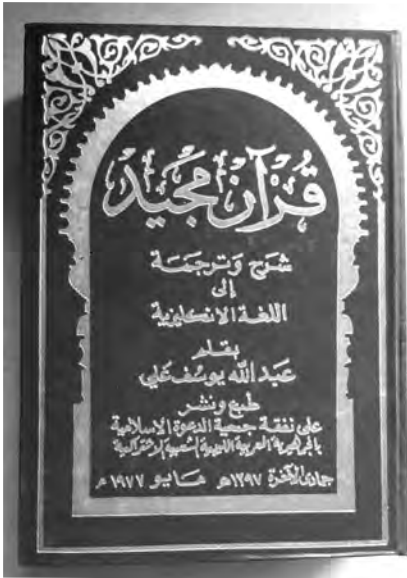 قُرْآن مَجِيد
شَرَح وَتَرجَمَة
إلى
اللغة الانكليزية
بقلم
عَبد الله يُوسُف عَلي
طبع ونشر
على نفقة جمعية الدعوة الاسلامية
بالجماهيرية العربية الليبية الشعبية الاشتراكية
جمادى الآخرة ١٣٩٧ھ مايو ١٩٧٧ م